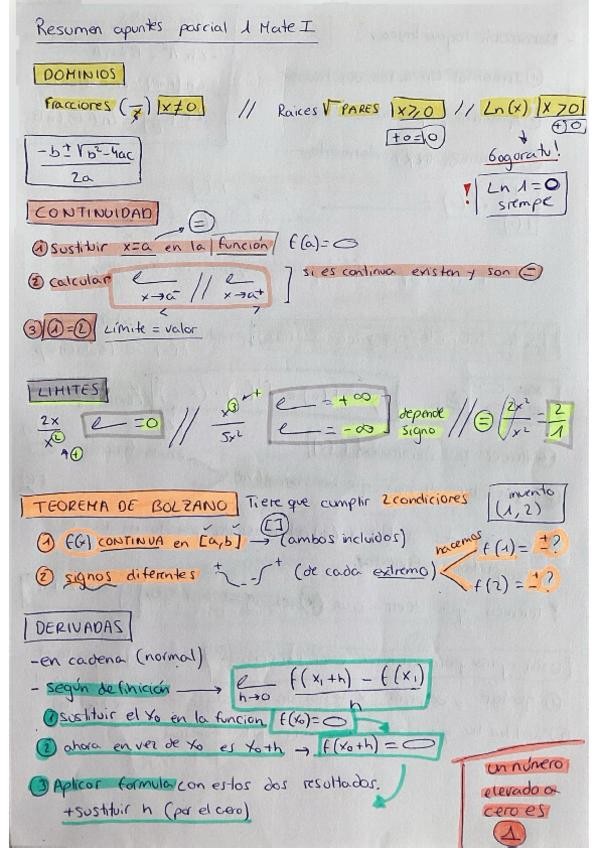 Resumen apuntes parcial 1 Mate I
DOMINIOS
Fracciones (—/x) x≠0 // Raices √ PARES x≥0 // Ln(x) x>0
+o=0 +0
-b±√b²-4ac
2a
logoratu!
! Ln 1=0
siempe
CONTINUIDAD
=
① Sustituir x=a en la función f(a)=
② calcular x→a⁻ // x→a⁺ ] si es continua existen y son =
< >
③ ①=② Límite = valor
LIMITES
2x/x² ℓ =0 // x³/5x² ℓ = +∞ depende // = 2x²/x² = 2/1
ℓ = -∞ signo
TEOREMA DE BOLZANO Tiere que cumplir 2 condiciones invento (1,2)
[ ]
① f(x) CONTINUA en [a,b] → (ambos incluidos) hacemos f(1)= ±?
② signos diferentes + - + (de cada extremo) f(2)= ±?
DERIVADAS
-en cadena (normal)
- según definición → ℓ h→0 f(x₁+h) - f(x₁)
h
① Sustituir el x₀ en la funcion f(x₀)=
② ahora en vez de x₀ es x₀+h → f(x₀+h)=
③ Aplicar formula con estos dos resultados.
+sustituir h (por el cero)
un número
elevado a
cero es
1